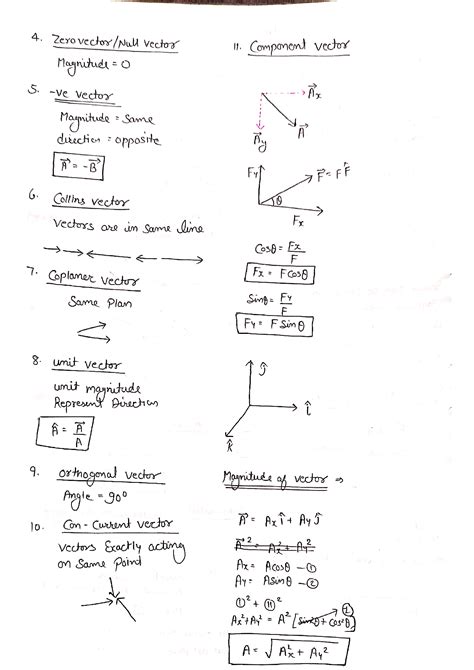 4. Zerovector/Null vector
Magnitude = 0
5. -ve vector
Magnitude = Same
direction = opposite
A⃗ = -B⃗
6. Collins vector
Vectors are in Same line
7. Coplaner vector
Same Plan
8. unit vector
unit magnitude
Represent Direction
Â = A⃗/A
9. orthogonal vector
Angle = 90°
10. Con-Current vector
vectors Exactly acting
on Same Point
11. Component vector
A⃗x
A⃗y
A⃗
Fy
F⃗ = F F̂
θ
Fx
Cosθ = Fx/F
Fx = F Cosθ
Sinθ = Fy/F
Fy = F Sinθ
ĵ
î
k̂
Magnitude of vector ⇒
A⃗ = Ax î + Ay ĵ
A⃗² = Ax² + Ay²
Ax = Acosθ — ①
Ay = Asinθ — ②
①² + ⑪²
1
Ax² + Ay² = A² [Sin²θ + Cos²θ]
A = √Ax² + Ay²